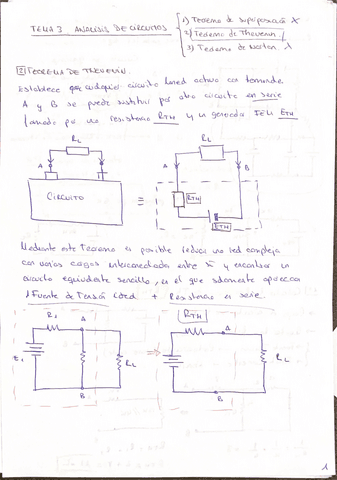 TEMA 3 ANALISIS DE CIRCUITOS
1) Teorema de Superposición X
2) Teorema de Thevenin
3) Teorema de Norton
2) TEOREMA DE THEVENIN.
Establece que cualquier circuito lineal activo con terminales
A y B se puede sustituir por otro circuito en serie
formado por una resistencia RTH y un generador IDEAL ETH
RL
A
B
CIRCUITO
≡
RL
A
B
RTH
ETH
Mediante este Teorema es posible reducir una red compleja
con varias cargas interconectadas entre sí y encontrar un
circuito equivalente sencillo, en el que solamente aparezca
1 Fuente de Tensión + Resistencia en serie.
R1
A
E1
RL
B
=>
RTH
A
RL
B
1